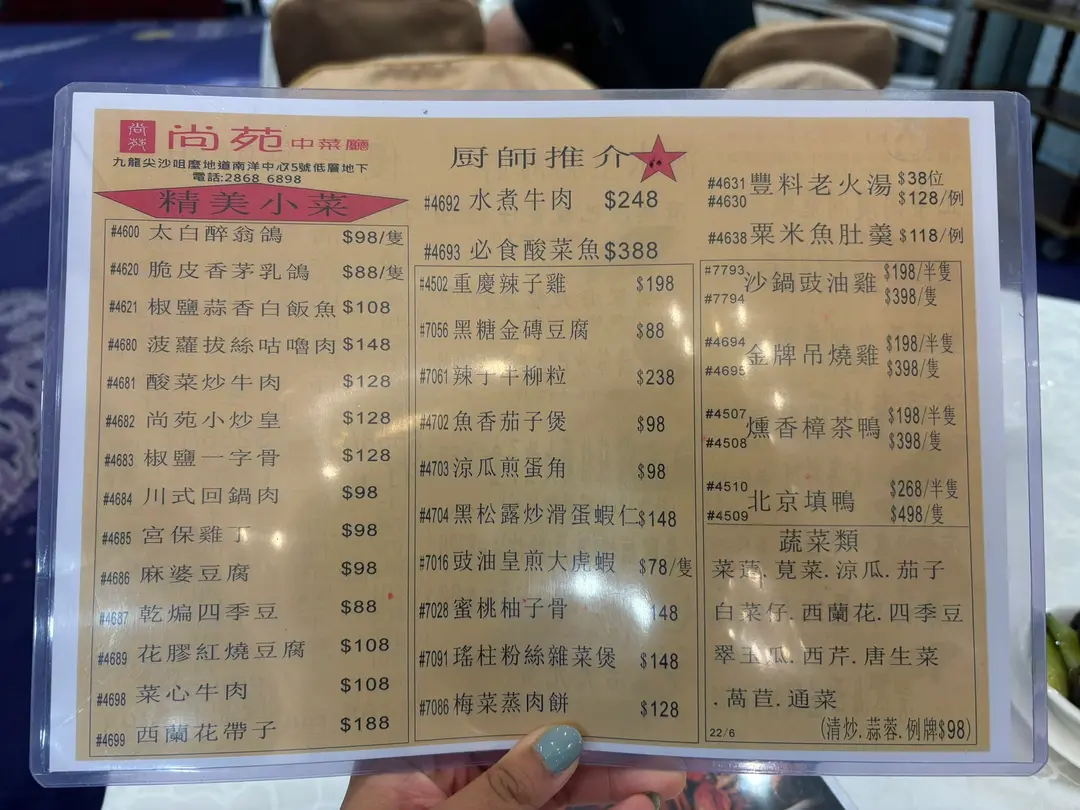 尚苑
尚苑 中菜廳
九龍尖沙咀麼地道南洋中心5號低層地下
電話:2868 6898
精美小菜
#4600 太白醉翁鴿 $98/隻
#4620 脆皮香茅乳鴿 $88/隻
#4621 椒鹽蒜香白飯魚 $108
#4680 菠蘿拔絲咕嚕肉 $148
#4681 酸菜炒牛肉 $128
#4682 尚苑小炒皇 $128
#4683 椒鹽一字骨 $128
#4684 川式回鍋肉 $98
#4685 宮保雞丁 $98
#4686 麻婆豆腐 $98
#4687 乾煸四季豆 $88
#4689 花膠紅燒豆腐 $108
#4698 菜心牛肉 $108
#4699 西蘭花帶子 $188
厨師推介
#4692 水煮牛肉 $248
#4693 必食酸菜魚 $388
#4502 重慶辣子雞 $198
#7056 黑糖金磚豆腐 $88
#7061 辣子牛柳粒 $238
#4702 魚香茄子煲 $98
#4703 涼瓜煎蛋角 $98
#4704 黑松露炒滑蛋蝦仁 $148
#7016 豉油皇煎大虎蝦 $78/隻
#7028 蜜桃柚子骨 148
#7091 瑤柱粉絲雜菜煲 $148
#7086 梅菜蒸肉餅 $128
#4631 豐料老火湯 $38位
#4630 $128/例
#4638 粟米魚肚羹 $118/例
#7793 沙鍋豉油雞 $198/半隻
#7794 $398/隻
#4694 金牌吊燒雞 $198/半隻
#4695 $398/隻
#4507 燻香樟茶鴨 $198/半隻
#4508 $398/隻
#4510 北京填鴨 $268/半隻
#4509 $498/隻
蔬菜類
菜蓮.莧菜.涼瓜.茄子
白菜仔.西蘭花.四季豆
翠玉瓜.西芹.唐生菜
.萵苣.通菜
22/6 (清炒.蒜蓉.例牌$98)